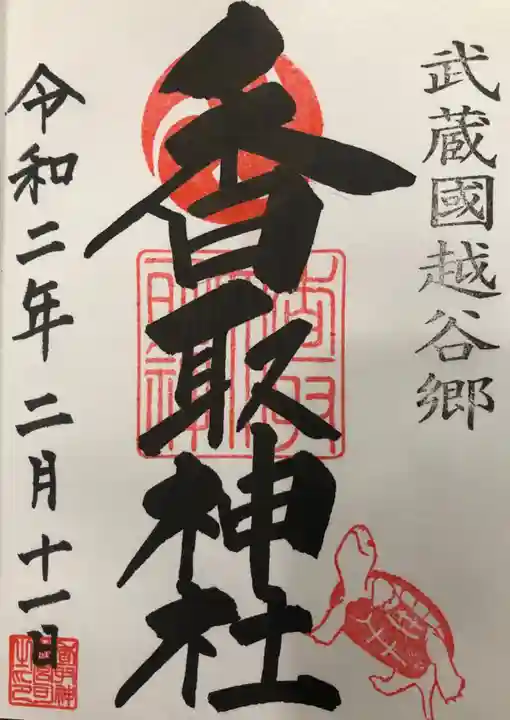 武蔵國越谷郷
香取神社
令和二年 二月十一日